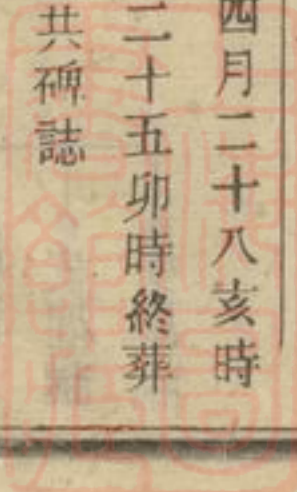 四月二十八亥時
二十五卯時終葬
共碑誌